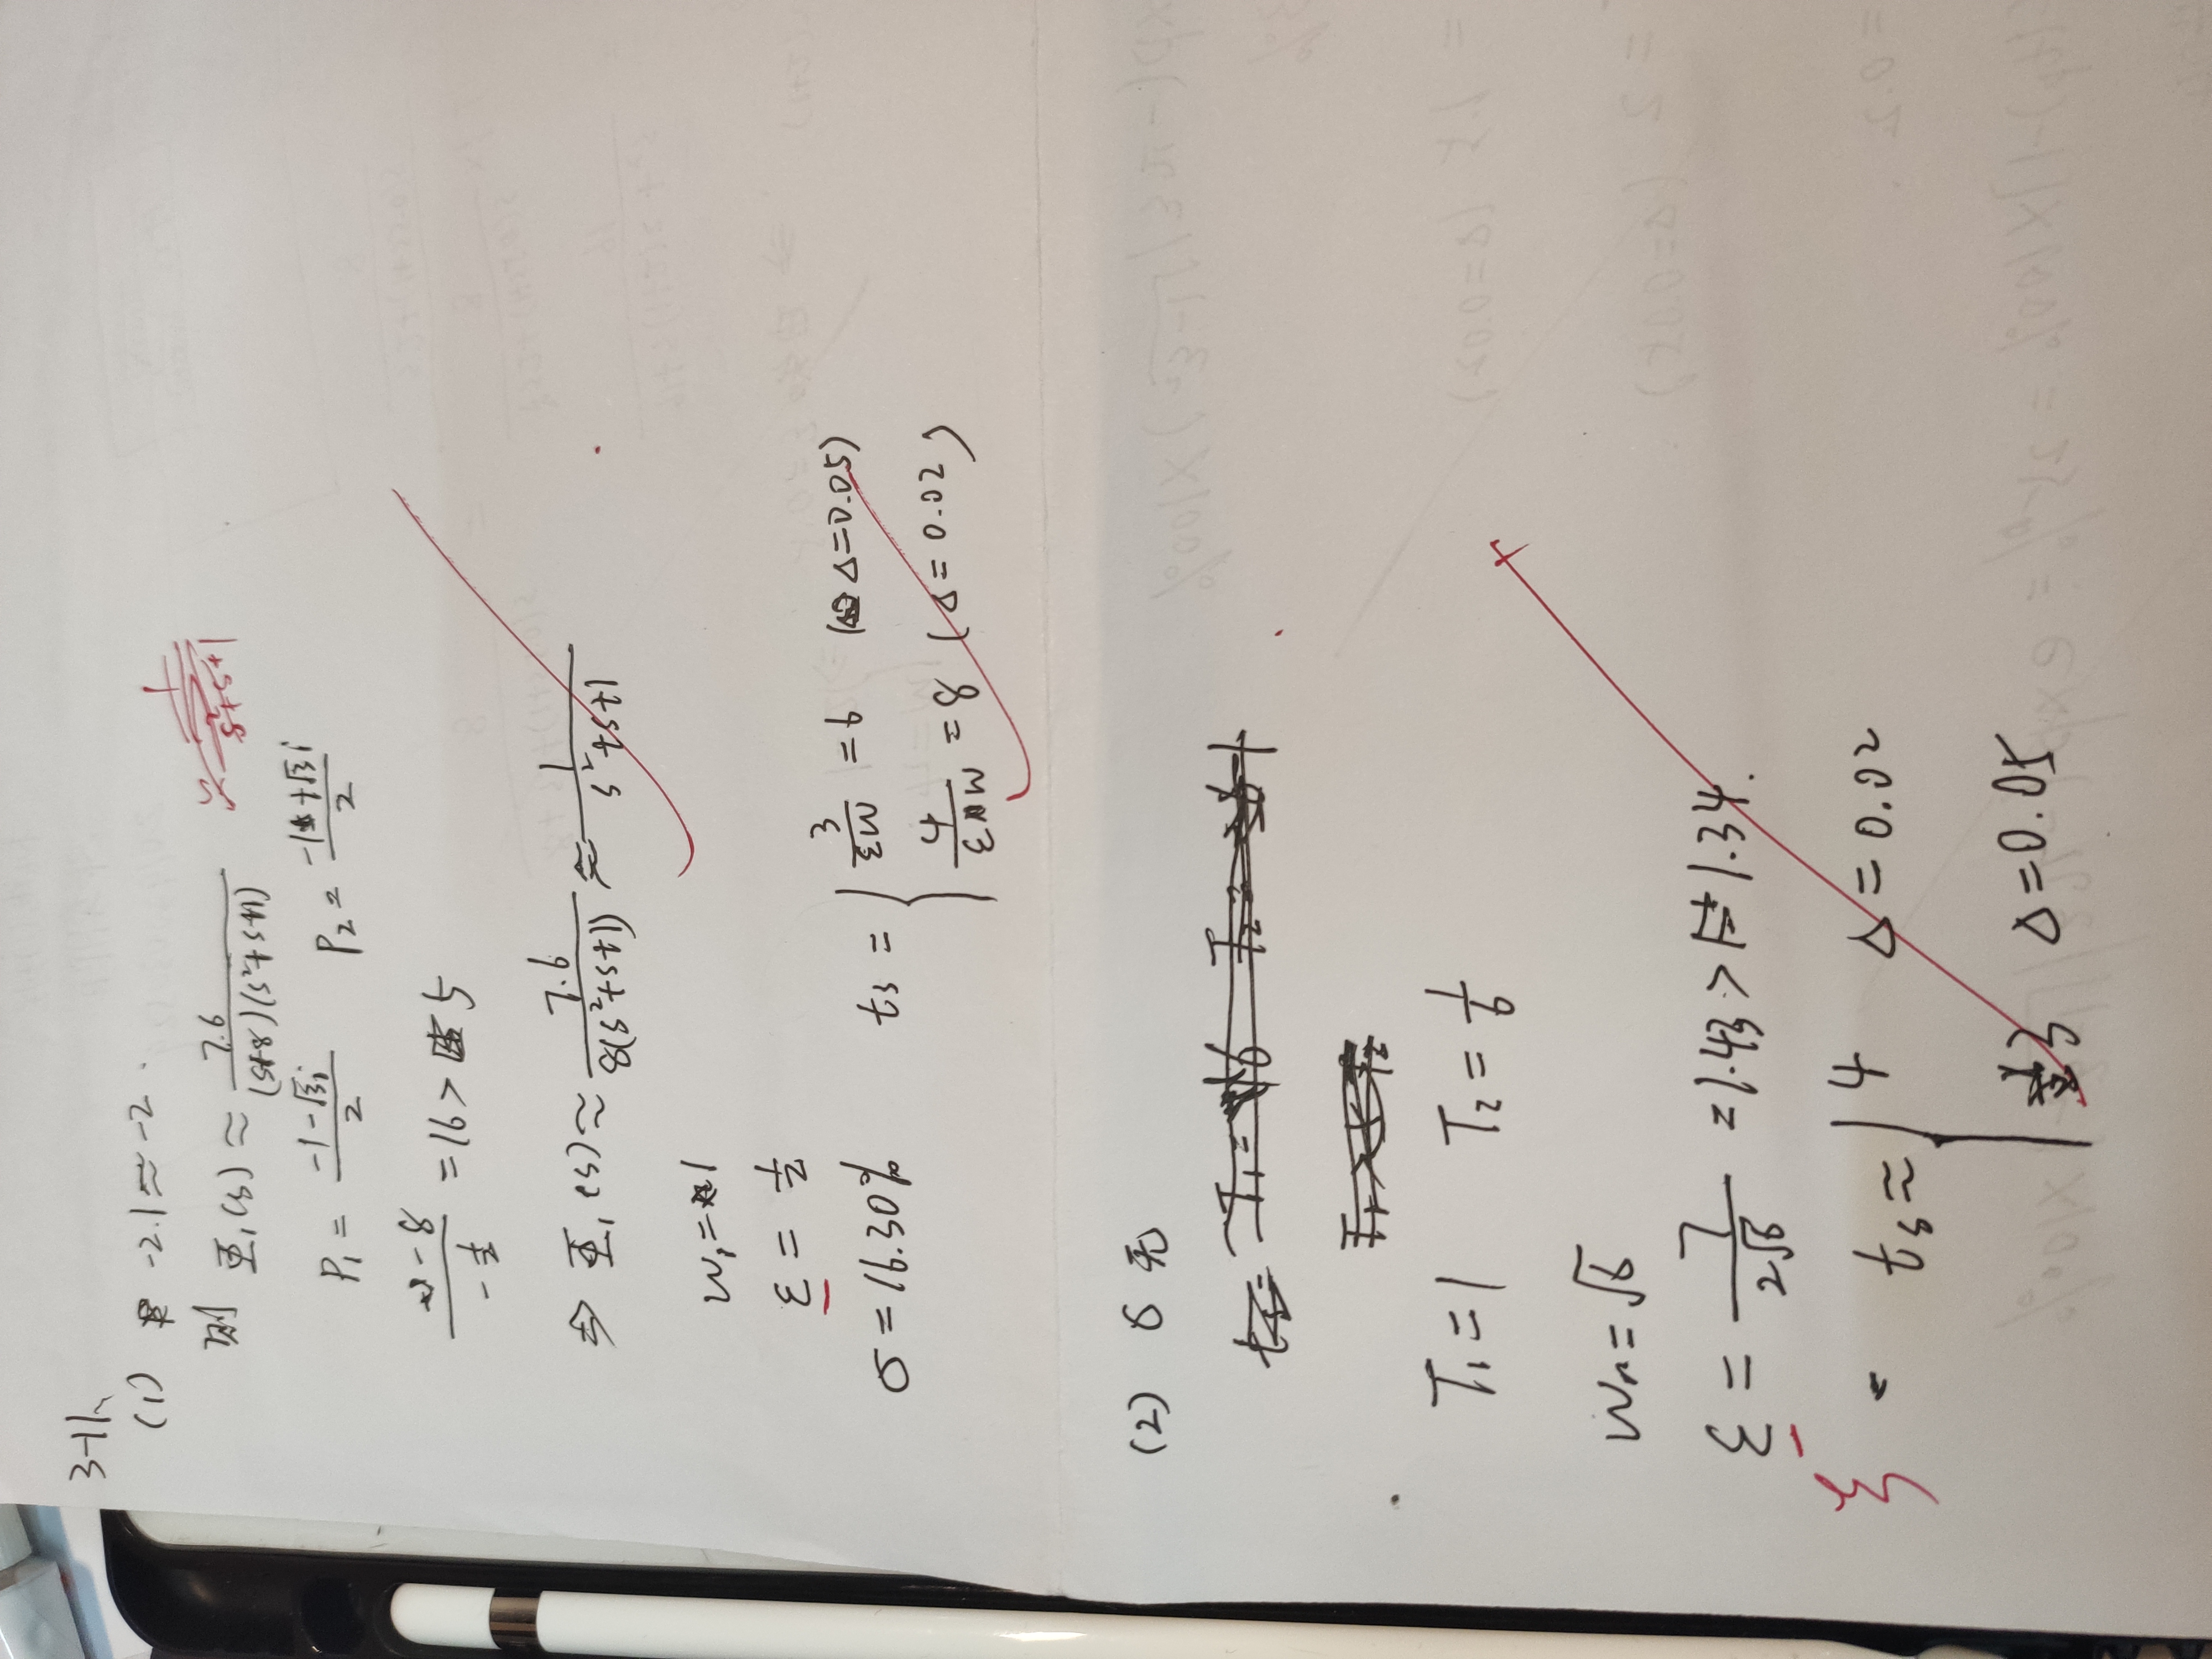 3-11、
(1) -2.1 ≈ -2.
则 Φ₁(s) ≈ 7.6/((s+8)(s²+s+1))
1/(s²+s+1)
P₁ = (-1-√3i)/2 P₂ = (-1+√3i)/2
-8/(-½) = 16 > 5
⇒ Φ₁(s) ≈ 7.6/(8(s²+s+1)) ≈ 1/(s²+s+1)
Wn=1
ξ = ½
σ = 16.30% ts = { 3/(ξW) = 6 (Δ=0.05)
4/(ξW) = 8 (Δ=0.02)
(2)
T₁=1 T₂=1/6
Wn=√6
ξ = 7/(2√6) = 1.43 > 1.34.
ξ
ts ≈ { 4 Δ=0.02
3 Δ=0.05